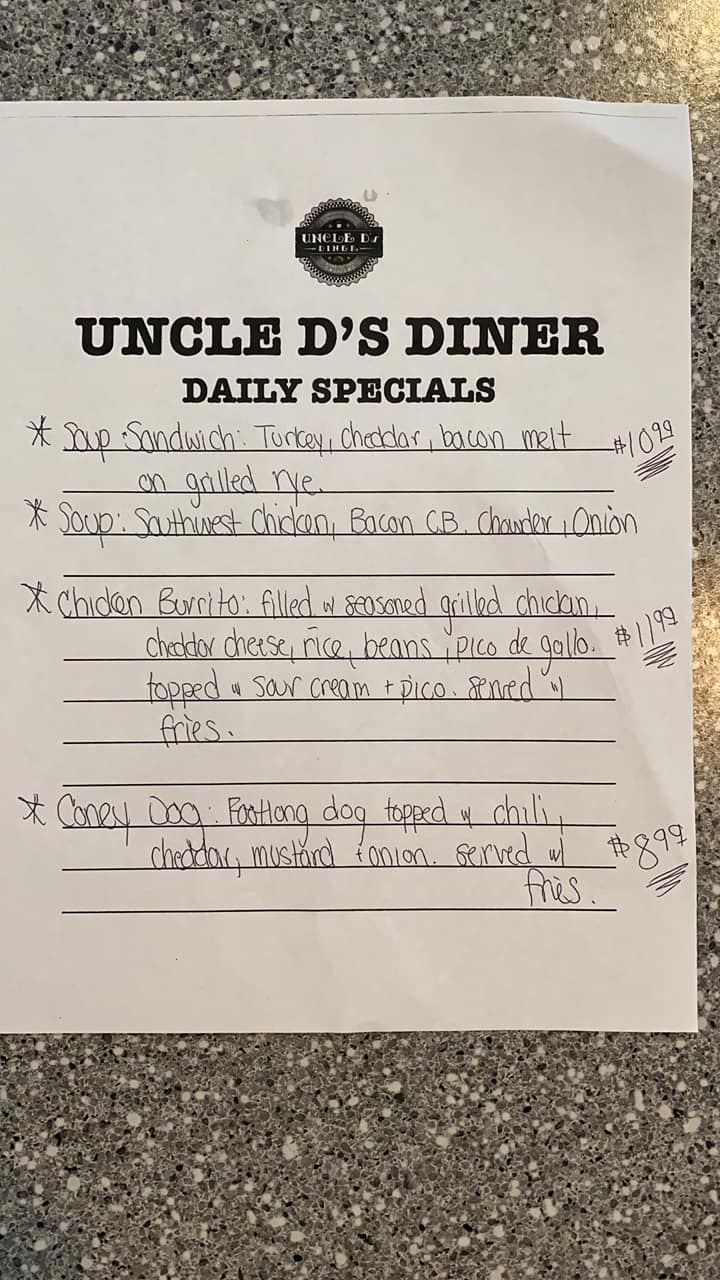 UNCLE D's
DINER
UNCLE D'S DINER
DAILY SPECIALS
* Soup Sandwich: Turkey, cheddar, bacon melt $10.99
on grilled rye.
* Soup: Southwest Chicken, Bacon C.B. Chowder, Onion
* Chicken Burrito: filled w seasoned grilled chicken,
cheddar cheese, rice, beans, pico de gallo. $11.99
topped w sour cream + pico. served w/
fries.
* Coney Dog: Footlong dog topped w chili,
cheddar, mustard + onion. served w/ $8.99
fries.